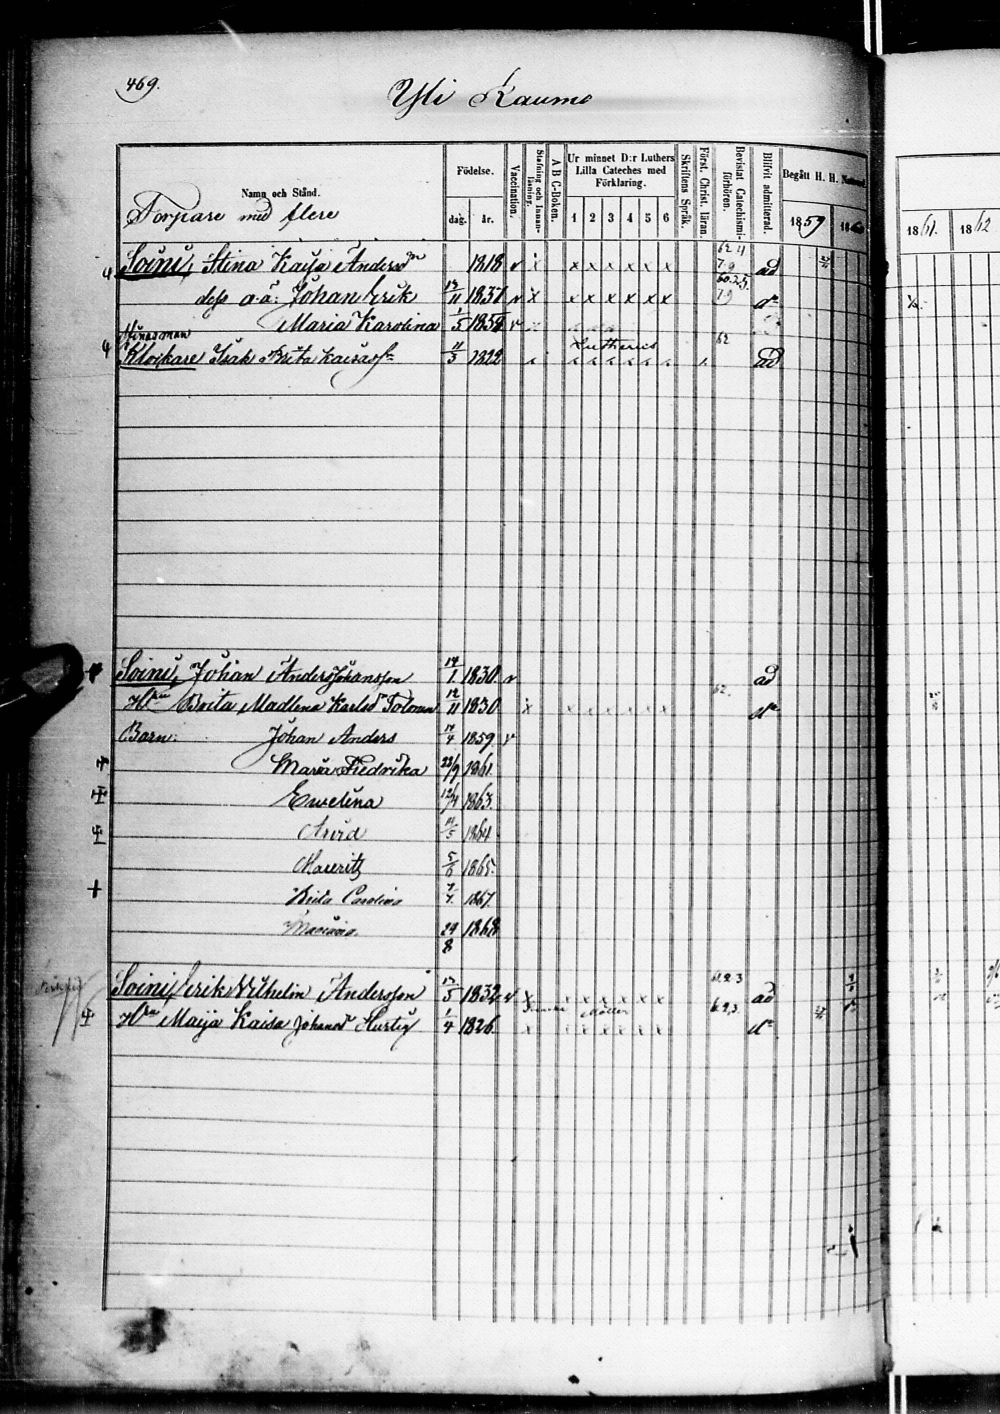 469.
Yli Raumo
Namn och Stånd.
Torpare med flere
Födelse.
dag. år.
Vaccination.
Stafning och Innanläsning.
A B C-Boken.
Ur minnet D:r Luthers Lilla Cateches med Förklaring.
1 2 3 4 5 6
Skriftens Språk.
Först. Christ. läran.
Bevistat Catechismiförhören.
Blifvit admitterad.
Begått H. H. Nattvard
1859 1860
1861. 1862
Soini, Stina Kaisa Andersdr 1818 v x x x x x x x ad
dess o.ä: Johan Erik 13/11 1837 v x x x x x x x do
Maria Karolina 1/5 1858 v
Stinas man
Lutherus 62
Klockare Isak 11/3 1822 ad
Soini, Johan Anders Johansson 14/1 1830 v ad
Hu Brita Madlena Karlsd Tolonen 12/11 1830 x x x x x x x 62. do
Barn: Johan Anders 17/4 1859 v
Maria Fredrika 23/9 1861
Ewelina 12/4 1863.
Arvid 11/5 1864
Mauritz 5/6 1865.
Brita Carolina 7/7. 1867.
29/8 1868
Soini, Erik Wilhelm Andersson 13/5 1832 v x x x x x x x 61.2.3 ad
Hu Maija Kaisa Johansd Hurtig 1/4 1826. x x x x x x x 61.2.3. do